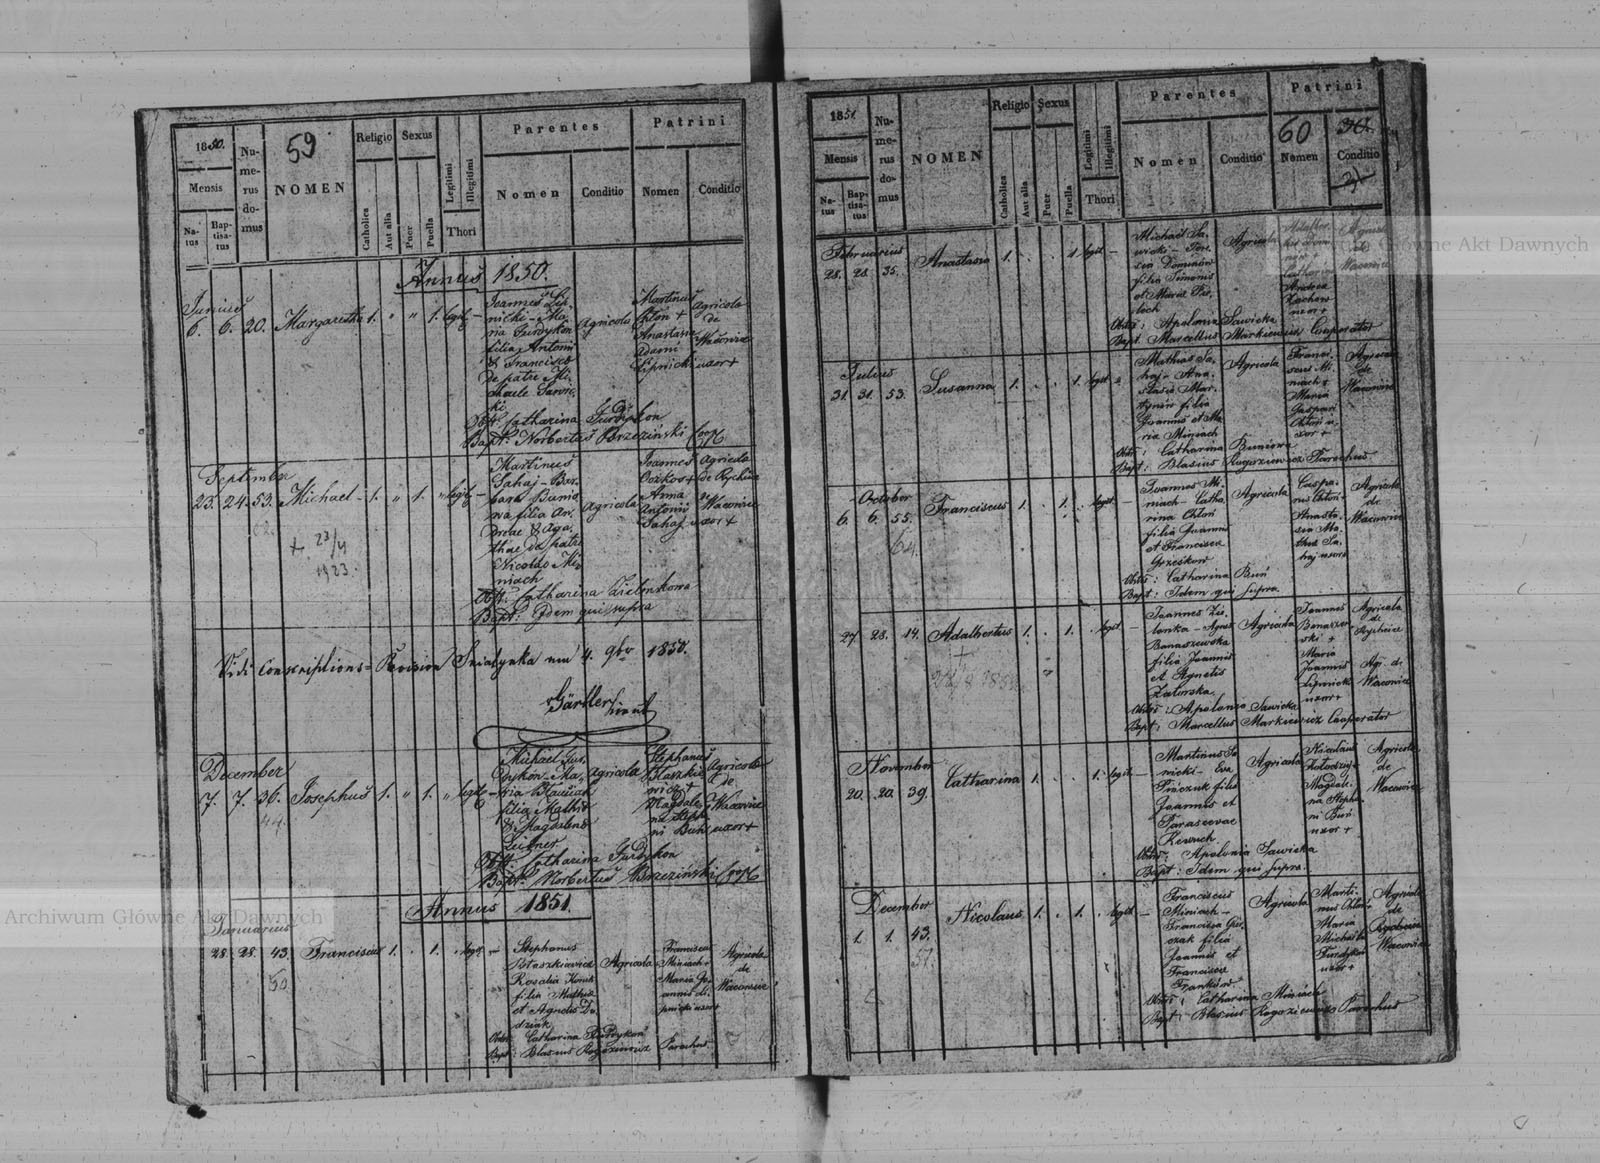 1850.
Numerus domus
59
NOMEN
Religio
Sexus
Parentes
Patrini
Mensis
Natus
Baptisatus
Catholica
Aut alia
Puer
Puella
Legitimi
Illegitimi
Thori
Nomen
Conditio
Nomen
Conditio
Annus 1850.
Junius
6. 6. 20. Margaretha 1. " " 1. legit. –
Joannes Lip-
nicki – Ma-
ria Furdykon
filia Antonii
& Francisca
de patre Mi-
chaele Sawic-
ki
Agricola
Martinus
Chłoń +
Anastasia
Adami
Lipnicki uxor +
Agricola
de
Wacowice
Obst. Catharina Furdykon
Bapt. Norbertus Brzeziński Coop
September
23. 24. 53. Michael – 1. " 1. " legit. –
+ 23/4
1923.
Martinus
Sahaj – Bar-
bara Bunio-
wa filia An-
dreae & Aga-
thae de patre
Nicolao Mi-
niach
Agricola
Joannes
Oczkoś +
Anna
Antonii
Sahaj uxor +
Agricola
de Rychcice
de
Wacowice
Obst. Catharina Zielenkowa
Bapt. Idem qui supra
Vidi Conscriptions-Revision Sniatynka am 4. 9br 1850.
Gärtler
December
7. 7. 36. Josephus 1. " 1. " legit. –
44.
Michael Fur-
dykon – Ma-
ria
filia Mathiae
& Magdalena
Agricola
Stephanus
Błaszkie-
wicz +
Magdale-
na Steph-
ni Buń uxor +
Agricola
de
Wacowice
Obst. Catharina Furdykon
Bapt. Norbertus Brzeziński Coop
Annus 1851.
Archiwum Główne Akt Dawnych
Januarius
28. 28. 43. Franciscus 1. . 1. . legit. –
50.
Stephanus
Błaszkiewicz
Rosalia
filia Mathiae
et Agnetis Du-
dziak
Agricola
Franciscus
Miniach +
Maria Jo-
annis Li-
pnicki uxor +
Agricola
de
Wacowice
Obst. Catharina Furdykon
Bapt. Blasius Rogoziewicz Parochus
1851.
Numerus domus
NOMEN
Religio
Sexus
Parentes
Patrini
60
Mensis
Natus
Baptisatus
Catholica
Aut alia
Puer
Puella
Legitimi
Illegitimi
Thori
Nomen
Conditio
Nomen
Conditio
31
Archiwum Główne Akt Dawnych
Februarius
28. 28. 35. Anastasia 1. . . 1. legit. –
Michael Sa-
wicki – There-
sia Dominów
filia Simonis
et Maria
Agricola
Catharina
Andrea
uxor +
Agricola
Wacowice
Obst: Apolonia Sawicka
Bapt. Marcellus Markiewicz Cooperator
Julius
31. 31. 53. Susanna 1. . . 1. legit. –
Mathias Sa-
haj – Ana-
stasia Mar-
tynów filia
Joannis et Ma-
ria Miniach
Agricola
Franci-
scus Mi-
niach +
Maria
Gaspari
Chłoń u-
xor +
Agricola
de
Wacowice
Obst: Catharina Buniowa
Bapt: Blasius Rogoziewicz Parochus
October
6. 6. 55. Franciscus 1. . 1. . legit. –
64.
Joannes Mi-
niach – Catha-
rina Chłoń
filia Joannis
et Francisca
Grześków
Agricola
Caspa-
rus Chłoń +
Anasta-
sia Ma-
thiae Sa-
haj uxor +
Agricola
de
Wacowice
Obst: Catharina Buń
Bapt: Idem qui supra
27. 28. 14. Adalbertus 1. . 1. . legit. –
+
Joannes Zie-
lonka – Agnes
Banaszewska
filia Joannis
et Agnetis
Zatorska
Agricola
Joannes
Banaszew-
ski +
Maria
Joannis
Lipnicki
uxor +
Agricola
de
Rychcice
Agr. de
Wacowice
Obst: Apolonia Sawicka
Bapt: Marcellus Markiewicz Cooperator
November
20. 20. 39. Catharina 1. . . 1. legit. –
Martinus Sa-
wicki – Eva
filia
Joannis et
Parascevae
Agricola
Nicolaus
Kołodziej +
Magdale-
na Stepha-
ni Buń
uxor +
Agricola
de
Wacowice
Obst: Apolonia Sawicka
Bapt: Idem qui supra.
December
1. 1. 43. Nicolaus 1. . 1. . legit. –
51.
Franciscus
Miniach –
Francisca Grze-
szak filia
Joannis et
Francisca
Franków
Agricola
Marti-
nus Chłoń +
Maria
Michaelis
Furdykon
uxor +
Agricola
de
Rychcice
Wacowice
Obst: Catharina Miniach
Bapt: Blasius Rogoziewicz Parochus